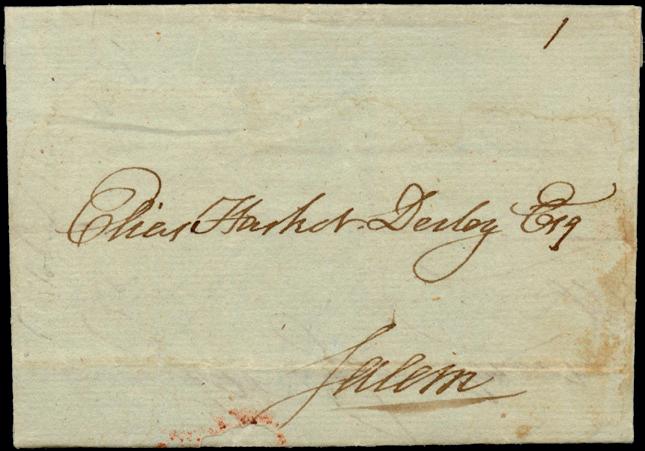 1
Elias Hasket Derby Esq
Salem